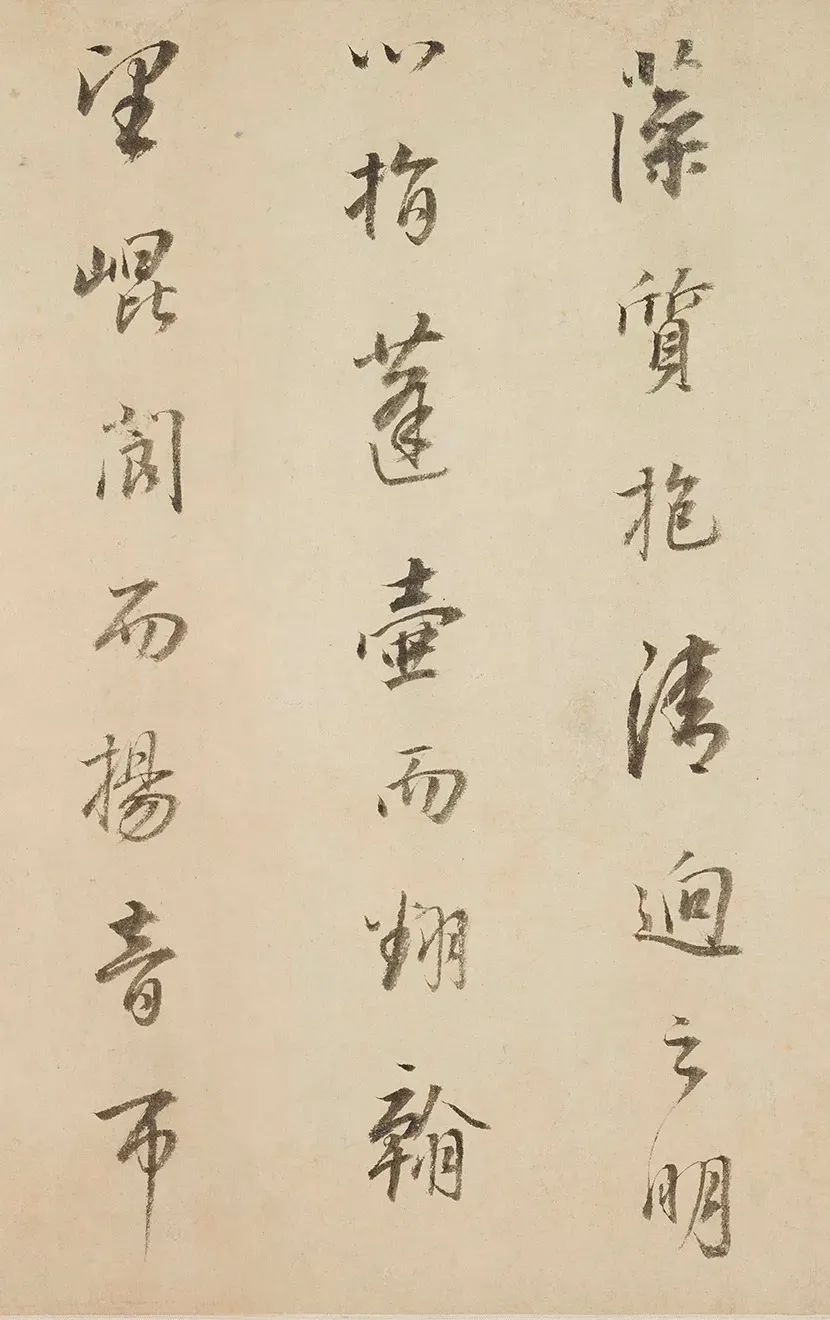 藻質抱清迥之明
心指蓬壺而翻翰
望崐閬而揚音帀